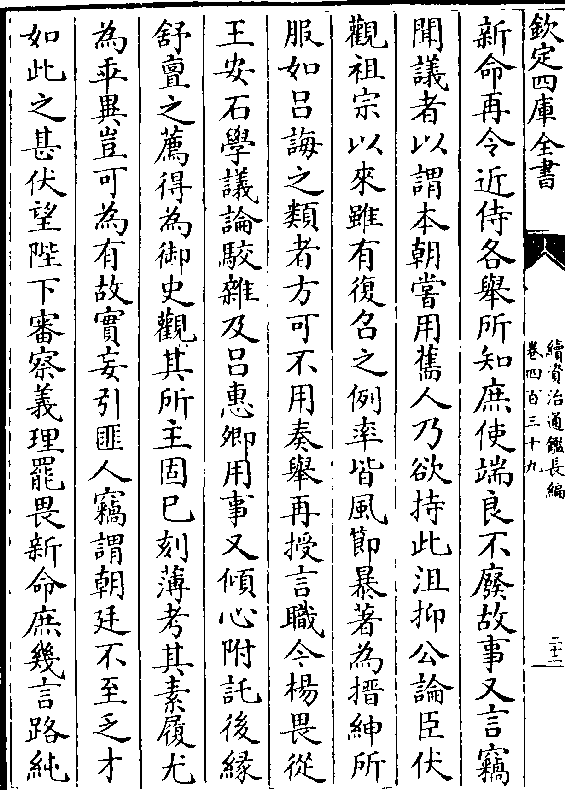 欽定四庫全書
續資治通鑑長編
卷四百三十九
二十二
新命再令近侍各舉所知庶使端良不廢故事又言竊
聞議者以謂本朝嘗用舊人乃欲持此沮抑公論臣伏
觀祖宗以來雖有復召之例率皆風節暴著為搢紳所
服如吕誨之類者方可不用奏舉再授言職今楊畏從
王安石學議論駁雜及吕惠卿用事又傾心附託後緣
舒亶之薦得為御史觀其所主固已刻薄考其素履尤
為乖異豈可為有故實妄引匪人竊謂朝廷不至乏才
如此之甚伏望陛下審察義理罷畏新命庶幾言路純